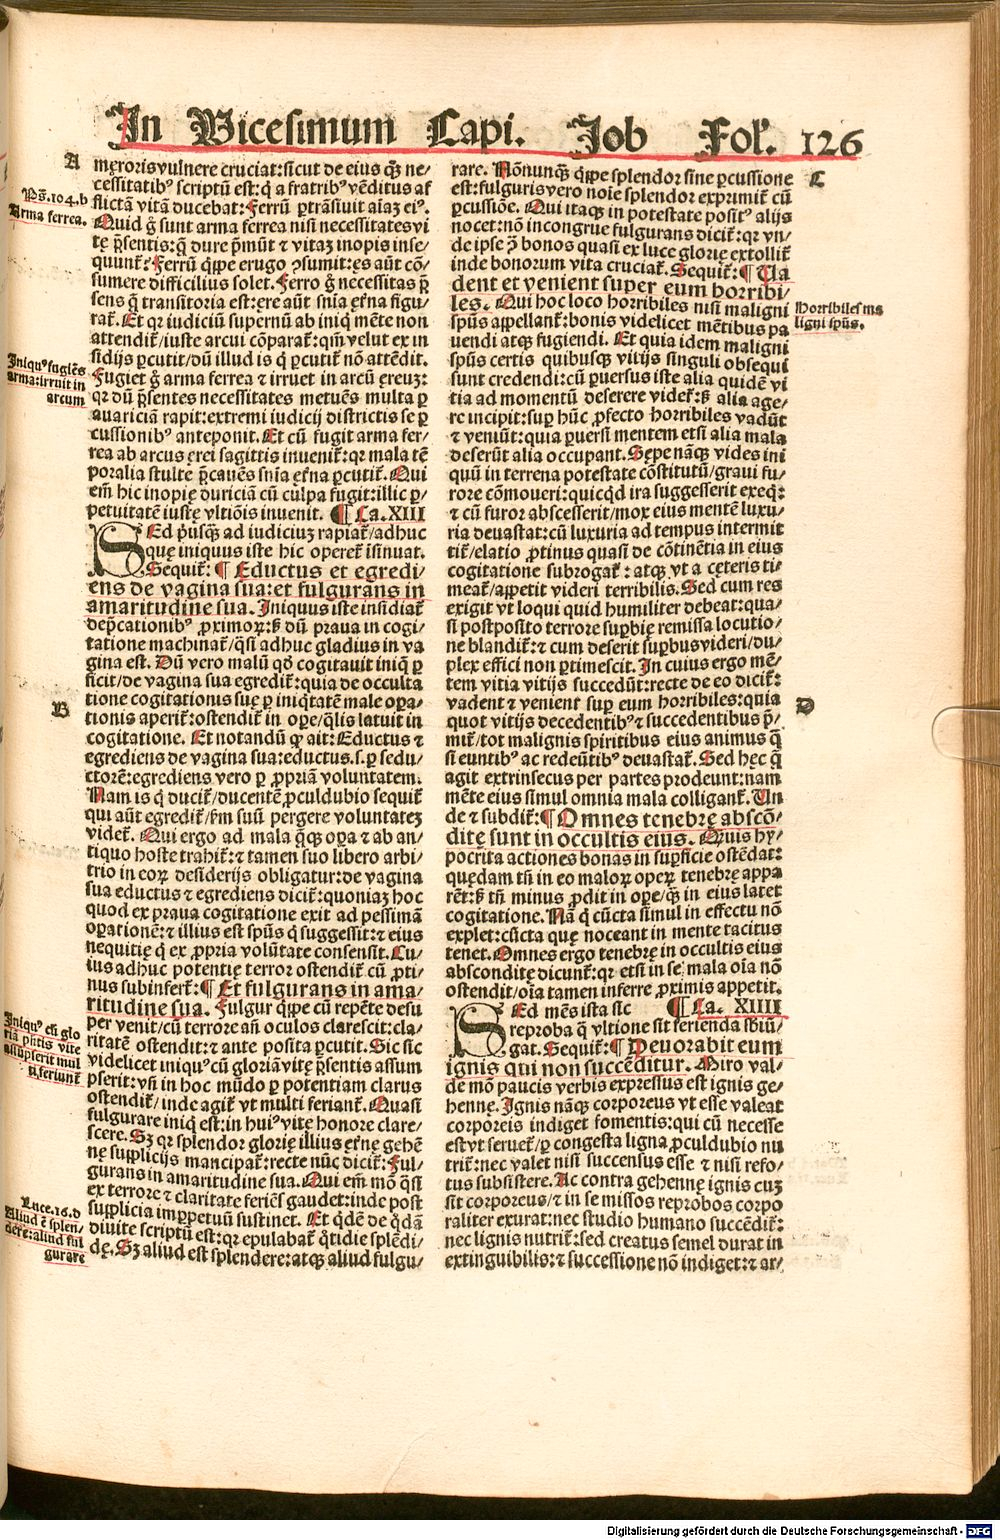 In Vicesimum Capi. Job Fol'. 126
A
męroris vulnere cruciat᷑: sicut de eius qͥ̄ꝫ ne⸗
cessitatibꝰ scriptũ est: q̃ a fratribꝰ vẽditus af
flictã vitã ducebat: Ferrũ ꝑtrãsiuit aĩaꝫ eiꝰ.
Quid g̊ sunt arma ferrea nisi necessitates vi
tę p̃sentis: q̃ dure p̃mũt ⁊ vitaꝫ inopis inse⸗
quunt᷑? Ferrũ q̃ppe erugo ꝯsumit: ęs aũt cõ⸗
sumere difficilius solet. Ferro g̊ necessitas p̃
sens q̃ transitoria est: ęre aũt snĩa ęt̃na figu⸗
rat᷑. Et qꝛ iudiciũ supernũ ab iniq̊ mẽte non
attendit᷑/ iuste arcui cõparat᷑: qm̃ velut ex in
sidijs ꝑcutit/ dũ illud is q̃ ꝑcutit᷑ nõ attẽdit.
Fugiet g̊ arma ferrea ⁊ irruet in arcũ ęreuꝫ:
qꝛ dũ p̃sentes necessitates metuẽs multa ꝑ
auariciã rapit: extremi iudicij districtis se ꝑ
cussionibꝰ anteponit. Et cũ fugit arma fer⸗
rea ab arcus ęrei sagittis inuenit᷑: qꝛ mala tẽ
poralia stulte p̃cauẽs snĩa ęt̃na ꝑcutit᷑. Qui
em̃ hic inopię duriciã cũ culpa fugit: illic ꝑ⸗
petuitatẽ iustę vltiõis inuenit. ¶ Ca. XIII
SEd p̃usq̃ꝫ ad iudiciuꝫ rapiat᷑/ adhuc
quę iniquus iste hic operet᷑ isinuat.
Sequit᷑: ¶ Eductus et egredi⸗
ens de vagina sua: et fulgurans in
amaritudine sua. Iniquus iste insidiat᷑
dep̃cationibꝰ ꝓximoꝝ: ꝫ dũ praua in cogi⸗
tatione machinat᷑/ q̃si adhuc gladius in va
gina est. Dũ vero malũ qð cogitauit iniq̃ ꝑ
ficit/ de vagina sua egredit᷑: quia de occulta
B
tione cogitationis suę ꝑ iniq̃tatẽ male oꝑa⸗
tionis aperit᷑: ostendit᷑ in oꝑe/ q̃lis latuit in
cogitatione. Et notandũ ꝙ ait: Eductus ⁊
egrediens de vagina sua: eductus .s. ꝑ sedu⸗
ctorẽ: egrediens vero ꝑ ꝓpriã voluntatem.
Nam is q̃ ducit᷑/ ducentẽ ꝓculdubio sequit᷑
qui aũt egredit᷑/ ẜm suũ pergere voluntateꝫ
videt᷑. Qui ergo ad mala q̃qꝫ oꝑa ⁊ ab an⸗
tiquo hoste trahit᷑: ⁊ tamen suo libero arbi⸗
trio in eoꝝ desiderijs obligatur: de vagina
sua eductus ⁊ egrediens dicit᷑: quoniaꝫ hoc
quod ex praua cogitatione exit ad pessimã
oꝑationẽ: ⁊ illius est spũs q̃ suggessit: ⁊ eius
nequitię q̃ ex ꝓpria volũtate consensit. Cu⸗
ius adhuc potentię terror ostendit᷑ cũ ꝓti⸗
nus subinfert᷑: ¶ Et fulgurans in ama⸗
ritudine sua. Fulgur q̃ppe cũ repẽte desu
per venit/ cũ terrore añ oculos clarescit: cla⸗
ritatẽ ostendit: ⁊ ante posita ꝑcutit. Sic sic
videlicet iniquꝰ cũ gloriã vitę p̃sentis assum
pserit: vñ in hoc mũdo ꝑ potentiam clarus
ostendit᷑/ inde agit᷑ vt multi feriant᷑. Quasi
fulgurare iniq̃ est: in huiꝰ vite honore clare⸗
scere. Sꝫ qꝛ splendor glorię illius ęt̃nę gehẽ
nę supplicijs mancipat᷑: recte nũc dicit᷑: Ful⸗
gurans in amaritudine sua. Qui em̃ mõ q̃si
ex terrore ⁊ claritate feriẽs gaudet: inde post
supplicia imꝑpetuũ sustinet. Et q̃dẽ de q̃dã
diuite scriptũ est: qꝛ epulabat᷑ q̃tidie splẽdi⸗
dę. Sꝫ aliud est splendere: atqꝫ aliud fulgu⸗
Ps̃. 104. b
Arma ferrea.
Iniquꝰ fugiẽs
arma: irruit in
arcum
Iniquꝰ cũ glo
riã p̃ntis vite
assũpserit mul
ti feriunt᷑
Luce. 16. d
Aliud ẽ splen⸗
dere: aliud ful
gurare
C
rare. Nõnunq̃ꝫ q̃ppe splendor sine ꝑcussione
est: fulguris vero noĩe splendor exprimit᷑ cũ
ꝑcussiõe. Qui itaqꝫ in potestate positꝰ alijs
nocet: nõ incongrue fulgurans dicit᷑: qꝛ vn⸗
de ipse ꝯ̃ bonos quasi ex luce glorię extollit᷑
inde bonorum vita cruciat᷑. Sequit᷑: ¶ Va
dent et venient super eum horribi⸗
les. Qui hoc loco horribiles nisi maligni
spũs appellant᷑: bonis videlicet mẽtibus pa
uendi atqꝫ fugiendi. Et quia idem maligni
spũs certis quibusqꝫ vitijs singuli obsequi
sunt credendi: cũ ꝑuersus iste alia quidẽ vi
tia ad momentũ deserere videt᷑: ꝫ alia age⸗
re incipit: suꝑ hũc ꝓfecto horribiles vadũt
⁊ veniũt: quia ꝑuersi mentem etsi alia mala
deserũt alia occupant. Sępe nãqꝫ vides ini
quũ in terrena potestate cõstitutũ/ graui fu⸗
rore cõmoueri: quicq̃d ira suggesserit exeq̃:
⁊ cũ furor abscesserit/ mox eius mentẽ luxu⸗
ria deuastat: cũ luxuria ad tempus intermit
tit᷑/ elatio ꝓtinus quasi de cõtinẽtia in eius
cogitatione subrogat᷑: atqꝫ vt a cęteris ti⸗
meat᷑/ appetit videri terribilis. Sed cum res
exigit vt loqui quid humiliter debeat: qua⸗
si postposito terrore suꝑbię remissa locutio⸗
ne blandit᷑: ⁊ cum deserit suꝑbus videri/ du⸗
plex effici non ꝑtimescit. In cuius ergo mẽ⸗
tem vitia vitijs succedũt: recte de eo dicit᷑:
vadent ⁊ venient suꝑ eum horribiles: quia
D
quot vitijs decedentibꝰ ⁊ succedentibus p̃⸗
mit᷑/ tot malignis spiritibus eius animus q̃
si euntibꝰ ac redeũtibꝰ deuastat᷑. Sed hęc q̃
agit extrinsecus per partes prodeunt: nam
mẽte eius simul omnia mala colligant᷑. Un
de ⁊ subdit᷑: ¶ Omnes tenebrę abscõ⸗
ditę sunt in occultis eius. Quis hy⸗
pocrita actiones bonas in suꝑficie ostẽdat:
quędam tñ in eo maloꝝ operũ tenebrę appa
rẽt: ꝫ tñ minus ꝓdit in oꝑe/ q̃ꝫ in eius latet
cogitatione. Nã q̃ cũcta simul in effectu nõ
explet: cũcta quę noceant in mente tacitus
tenet. Omnes ergo tenebrę in occultis eius
absconditę dicunt᷑: qꝛ etsi in se mala oĩa nõ
ostendit/ oĩa tamen inferre ꝓximis appetit.
SEd mẽs ista sic ¶ Ca. XIIII
reproba q̃ vltione sit ferienda sbiũ⸗
gat. Sequit᷑: ¶ Deuorabit eum
ignis qui non succẽditur. Miro val⸗
de mõ paucis verbis expressus est ignis ge⸗
hennę. Ignis nãqꝫ corporeus vt esse valeat
corporeis indiget fomentis: qui cũ necesse
est vt seruet᷑/ ꝑ congesta ligna ꝓculdubio nu
trit᷑: nec valet nisi succensus esse ⁊ nisi refo⸗
tus subsistere. Ac contra gehennę ignis cuꝫ
sit corporeus/ ⁊ in se missos reprobos corpo
raliter exurat: nec studio humano succẽdit᷑:
nec lignis nutrit᷑: sed creatus semel durat in
extinguibilis: ⁊ successione nõ indiget: ⁊ ar⸗
Horribiles ma
ligni spũs.
Digitalisierung gefördert durch die Deutsche Forschungsgemeinschaft - DFG